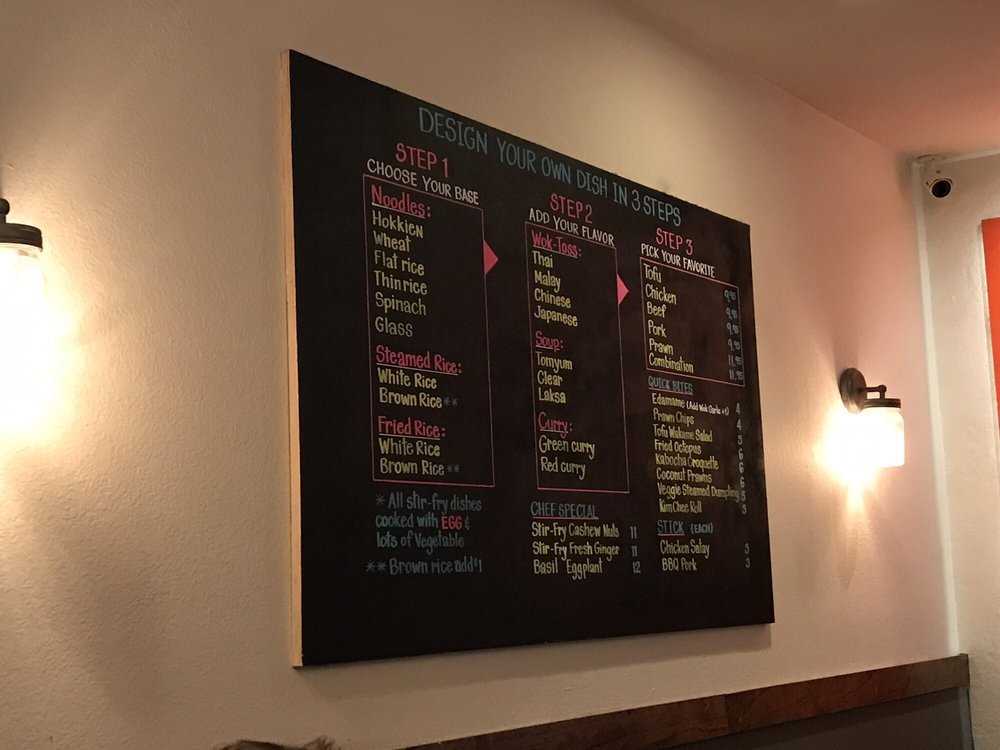 DESIGN YOUR OWN DISH IN 3 STEPS
STEP 1
CHOOSE YOUR BASE
Noodles:
Hokkien
Wheat
Flat rice
Thin rice
Spinach
Glass
Steamed Rice:
White Rice
Brown Rice **
Fried Rice:
White Rice
Brown Rice **
* All stir-fry dishes
cooked with EGG &
lots of Vegetable
** Brown rice add $1
STEP 2
ADD YOUR FLAVOR
Wok-Toss:
Thai
Malay
Chinese
Japanese
Soup:
Tomyum
Clear
Laksa
Curry:
Green curry
Red curry
CHEF SPECIAL
Stir-Fry Cashew Nuts 11
Stir-Fry Fresh Ginger 11
Basil Eggplant 12
STEP 3
PICK YOUR FAVORITE
Tofu 9.95
Chicken 9.95
Beef 9.95
Pork 9.95
Prawn 11.95
Combination 11.95
QUICK BITES
Edamame (Add Wok Garlic +1) 4
Prawn Chips 4
Tofu Wakame Salad 5
Fried Octopus 6
Kabocha Croquette 6
Coconut Prawns 6
Veggie Steamed Dumpling 5
Kim Chee Roll 5
STICK (EACH)
Chicken Satay 3
BBQ Pork 3